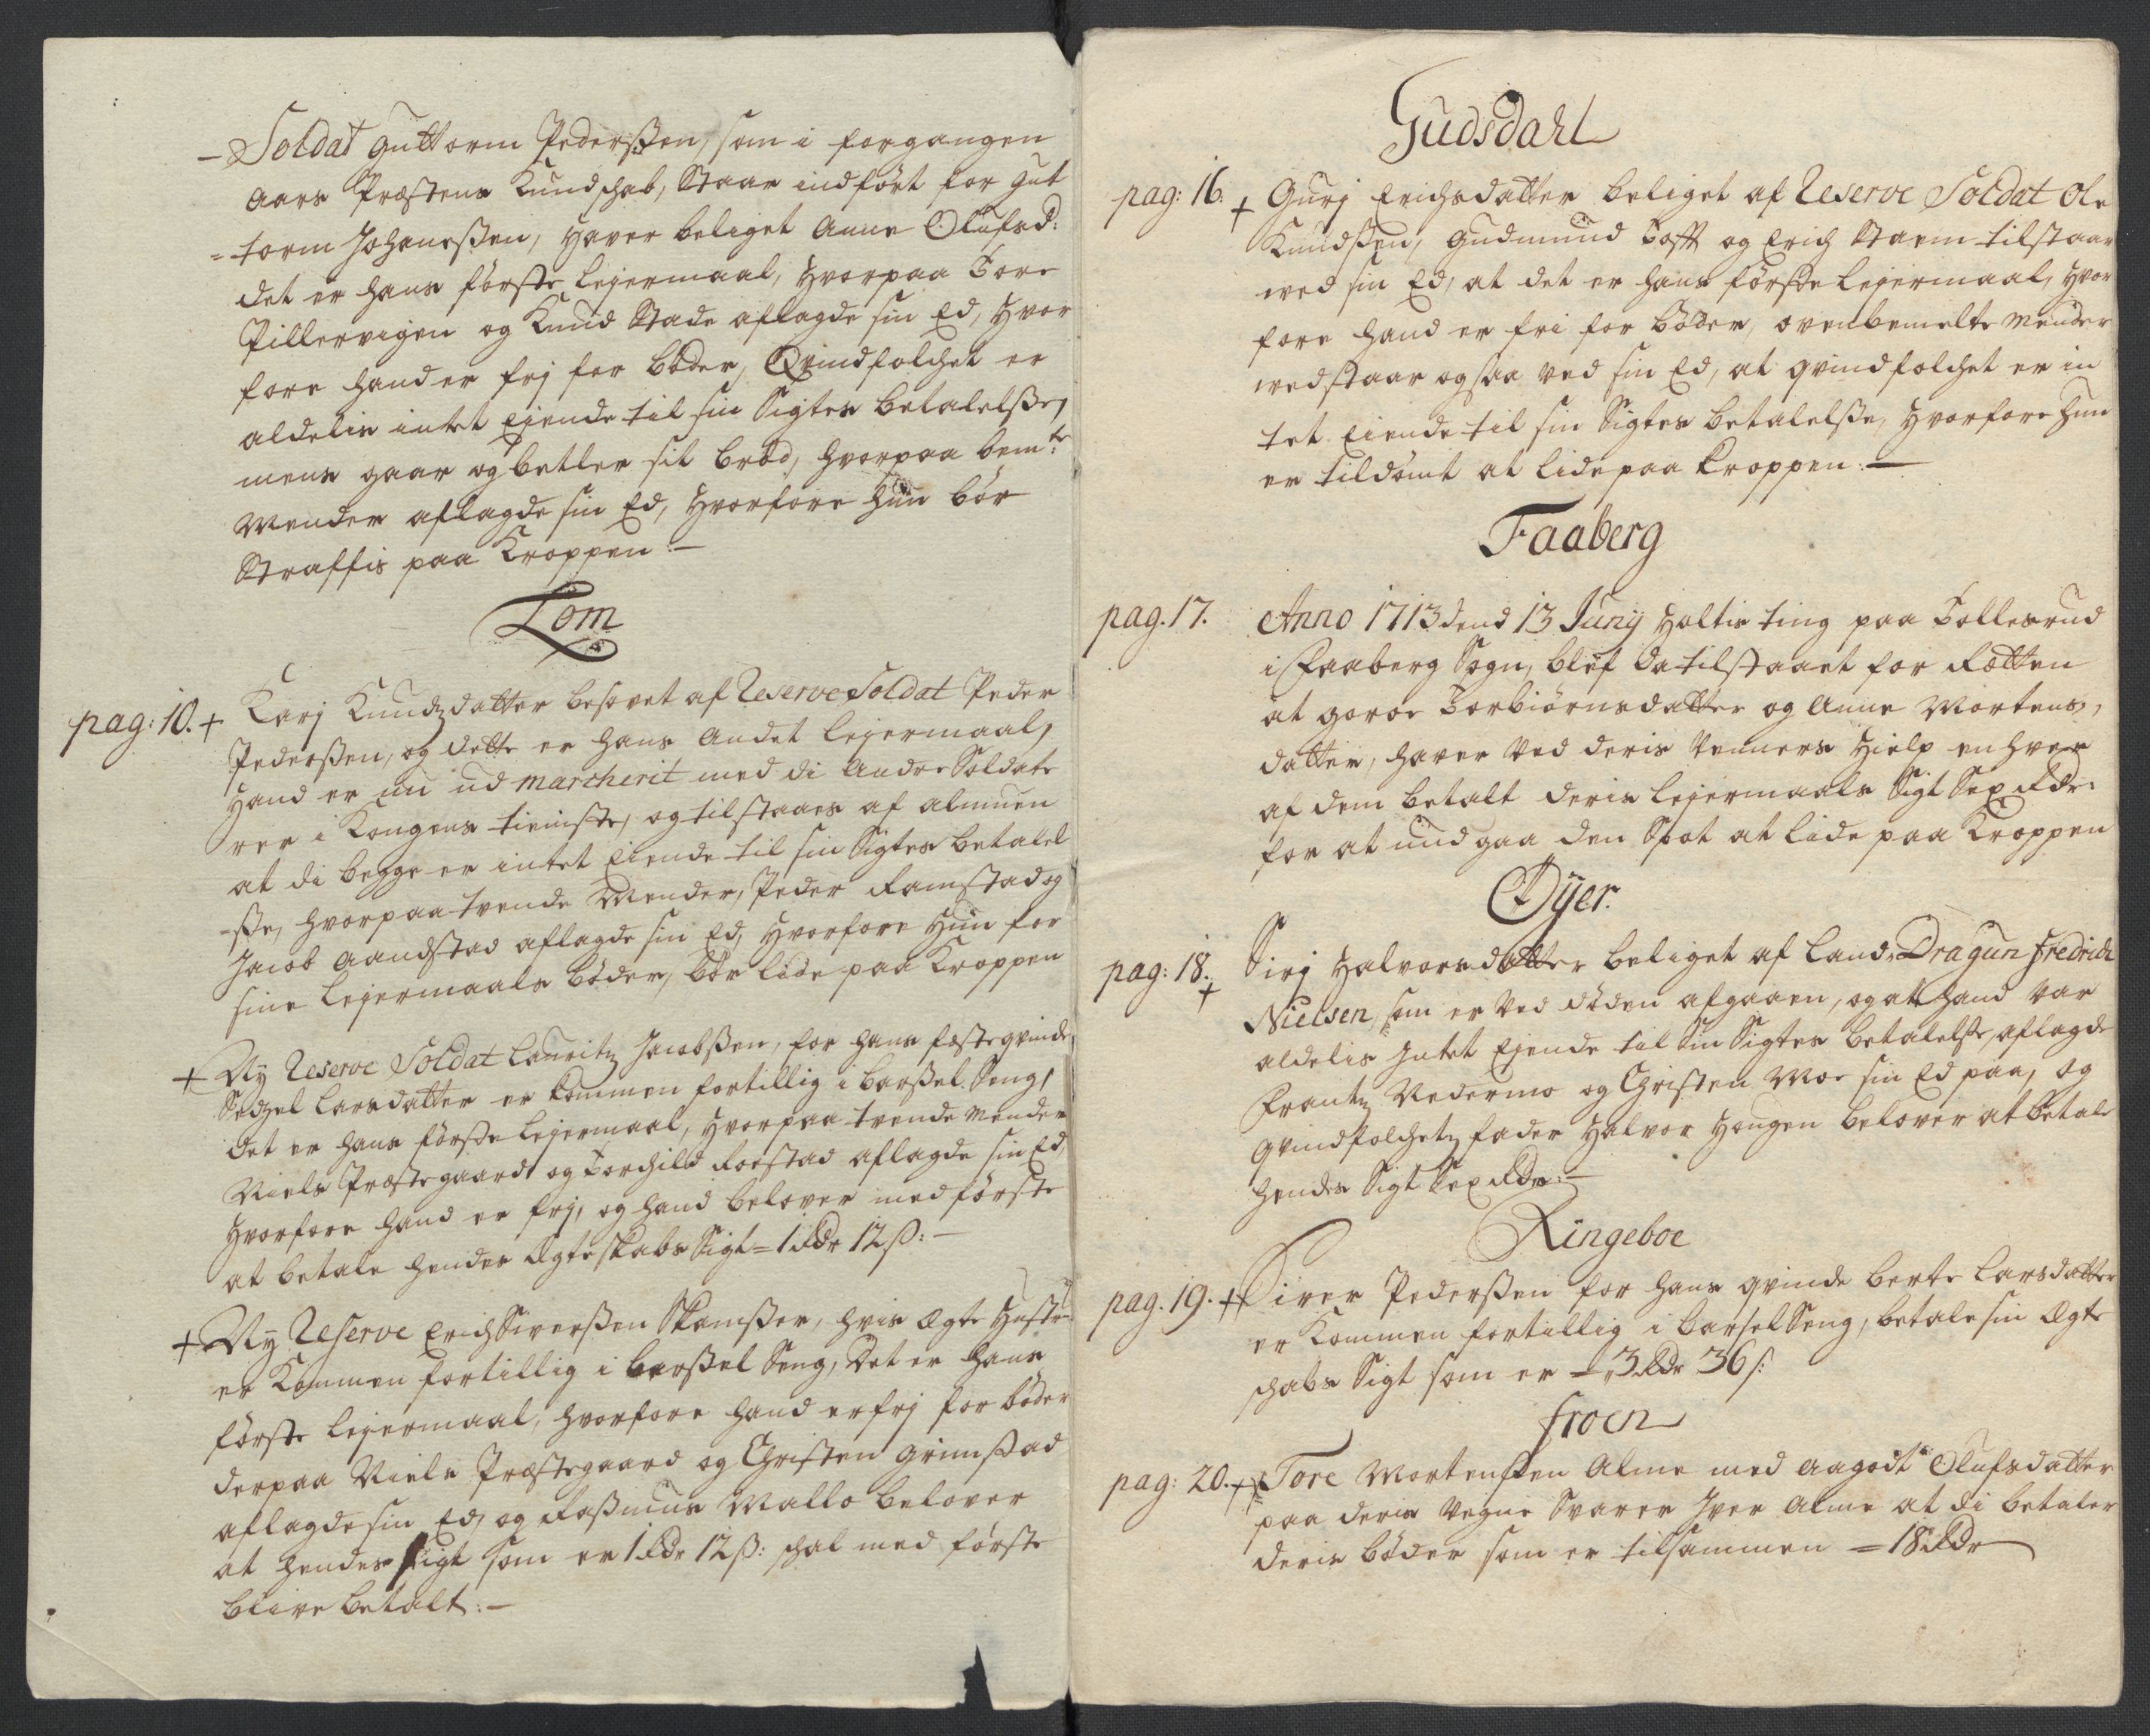 - Soldat Guttorm Pederssen, som i forgangen
Aars Præstens Kundschab, Staar indført for Gut
= torm Johanessen, hafver beliget Anne Olufsd:
det er hans første lejermaal, hvorpaa Tore
Pillervigen og Knud Stade aflagde sin Ed, hvor
fore hand er frj for bøder, Qvindfolchet er
aldelis intet Ejende til sin Sigtes betalelsse,
mens gaar og betler sit brød, hvorpaa bemte:
Mender aflagde sin Ed, hvorfore hun bør
Straffis paa Kroppen :—
Lom
pag: 10. + Karj Knudzdatter besovet af Reserve Soldat Peder
Pederssen, og dette er hans Andet lejermaal,
hand er nu ud marcherit med di Andre Soldate
rer i Kongens tieniste, og tilstaaes af almuen
at di begge er intet Eiende til sin Sigtes betalel
=sse, hvorpaa tvende Mender, Peder Ramstad og
Jacob Aandstad aflagde sin Ed, hvorfore hun for
sine lejermaals bøder, bør lide paa Kroppen
+ Ny Reserve Soldat Lauritz Jacobssen, for hans fæsteqvinde
Sidzel Larsdatter er kommen fortillig i barssel Seng,
det er hans første lejermaal, hvorpaa tvende mender
Niels Præstegaardt og Torchild Rodstad aflagde sin Ed,
hvorfore hand er frj, og hand belover med første
at betale hendes Ægteskabs Sigt = 1 Rdr 12 ß: —
+ Ny Reserve Erich Sverssen Skamsser, hvis Ægte Hustru
er kommen fortillig i barssel Seng, Det er hans
første lejermaal, hvorfore hand er frj for bøder
derpaa Niels Præstegaard og Christen Grimstad
aflagde sin Ed, og Rassmus Mallo belover
at hendes Sigt som er 1 Rdr 12 ß: schal med første
blive betalt :—
Gudsdahl
pag: 16. + Gurj Erichsdatter beliget af Reserve Soldat Ole
Knudssen, Gudmund Toft og Erich Starm tilstaar
ved sin Ed, at det er hans første lejermaal, hvor
fore hand er fri for bøder, ovenbemelte mender
vedstaar ogsaa ved sin Ed, at qvindfolchet er in
tet Eiende til sin Sigtes betalelsse, hvorfore hun
er tildømt at lide paa kroppen :—
Faaberg
pag. 17. Anno 1713 dend 13 Junij holtis ting paa Tollesrud
i Faaberg Sogn, blef da tilstaaet for Rætten
at Goroe Torbiørnsdatter og Anne Mortens,
datter, haver ved deris Venners Hielp enhver
af dem betalt deris lejermaals Sigt Sex Rdr:
for at undgaa den Spot at lide paa Kroppen
Øijer.
pag: 18. + Sirj Halvorsdatter beliget af Land-Dragun Fredrich
Nielsen, som er ved døden afgaaen, og at hand var
aldelis Intet Ejende til sin Sigtes betalelsse, aflagde
Frantz Nedermo og Christen Moe sin Ed paa, og
qvindfolchetz fader Halvor Hougen belover at betale
hendes Sigt Sex Rdr :—
Ringeboe
pag. 19. + Siver Pederssen for hans qvinde Berte Larsdatter
er kommen fortillig i barselSeng, betale sin Ægte
schabs Sigt som er = 3 Rdr 36 s:
froen
pag: 20. + Tore Mortenssen Alme med Aagodt Olufsdatter
paa deris vegne Svarer Iver Alme at di betaler
deris bøder som er tilsammen = 18 Rdr